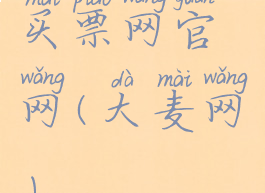 mǎi piào wǎng guān
买票网官
wǎng dà mài wǎng
网(大麦网
)